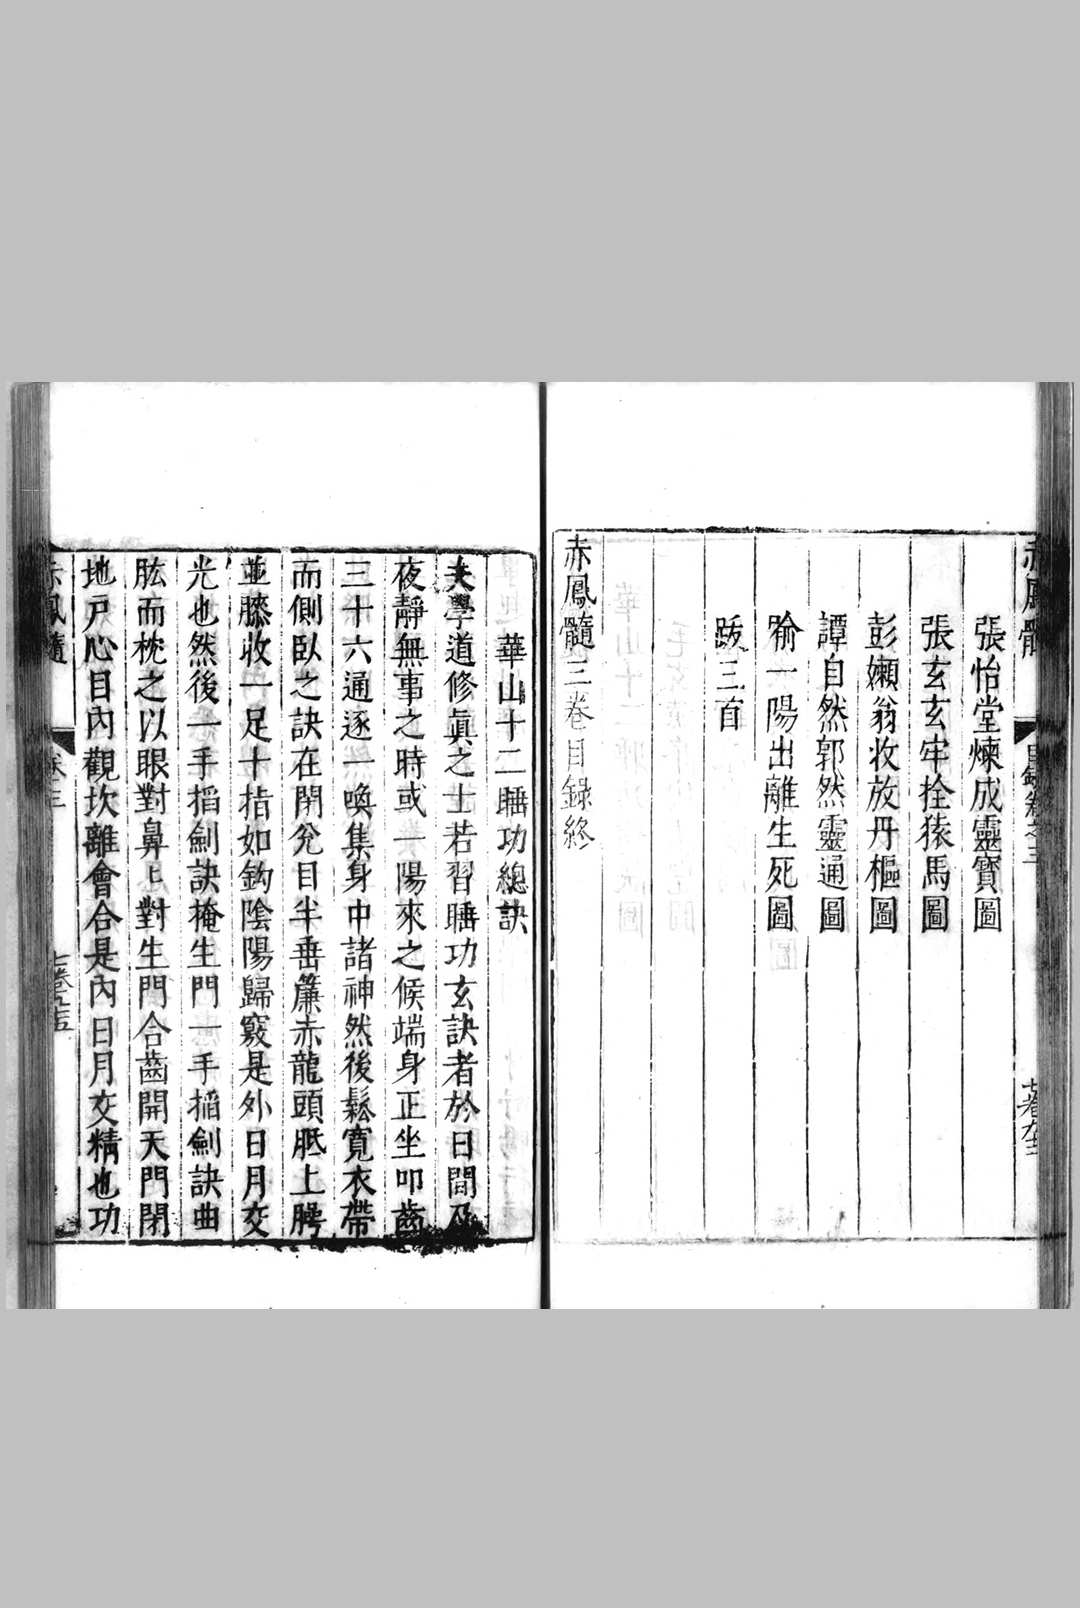 赤鳳髓
目錄卷之三
張怡堂煉成靈寶圖
張玄玄牢拴猿馬圖
彭嬾翁收放丹樞圖
譚自然郭然靈通圖
喻一陽出離生死圖
跋三首
赤鳳髓三卷目錄終
華山十二睡功總訣
夫學道修眞之士若習睡功玄訣者於日間及
夜靜無事之時或一陽來之候端身正坐叩齒
三十六通逐一喚集身中諸神然後鬆寬衣帶
而側臥之訣在閉兊目半垂簾赤龍頭胝上腭
並膝收一足十指如鈎陰陽歸竅是外日月交
光也然後一手掐劍訣掩生門一手掐劍訣曲
肱而枕之以眼對鼻鼻對生門合齒開天門閉
地戸心目內觀坎離會合是內日月交精也功
赤鳳髓
卷三